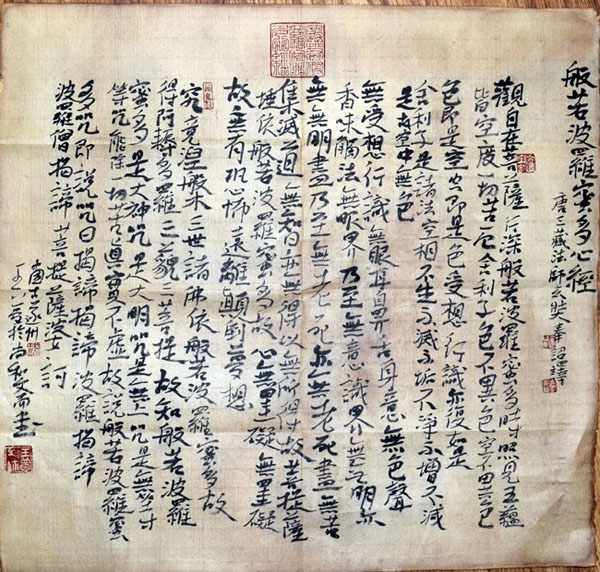 般若波羅蜜多心經
唐三藏法師玄奘奉詔譯
觀自在菩薩行深般若波羅蜜多時照見五蘊
皆空度一切苦厄舍利子色不異空空不異色
色即是空空即是色受想行識亦復如是
舍利子是諸法空相不生不滅不垢不淨不增不減
是故空中無色
無受想行識無眼耳鼻舌身意無色聲
香味觸法無眼界乃至無意識界無無明亦
無無明盡乃至無老死亦無老死盡無苦
集滅道無知亦無得以無所得故菩提薩
埵依般若波羅蜜多故心無罣礙無罣礙
故無有恐怖遠離顛倒夢想
究竟涅槃三世諸佛依般若波羅蜜多故
得阿耨多羅三藐三菩提故知般若波羅
蜜多是大神咒是大明咒是無上咒是無等
等咒能除一切苦真實不虛故說般若波羅蜜
多咒即說咒曰揭諦揭諦波羅揭諦
波羅僧揭諦菩提薩婆訶